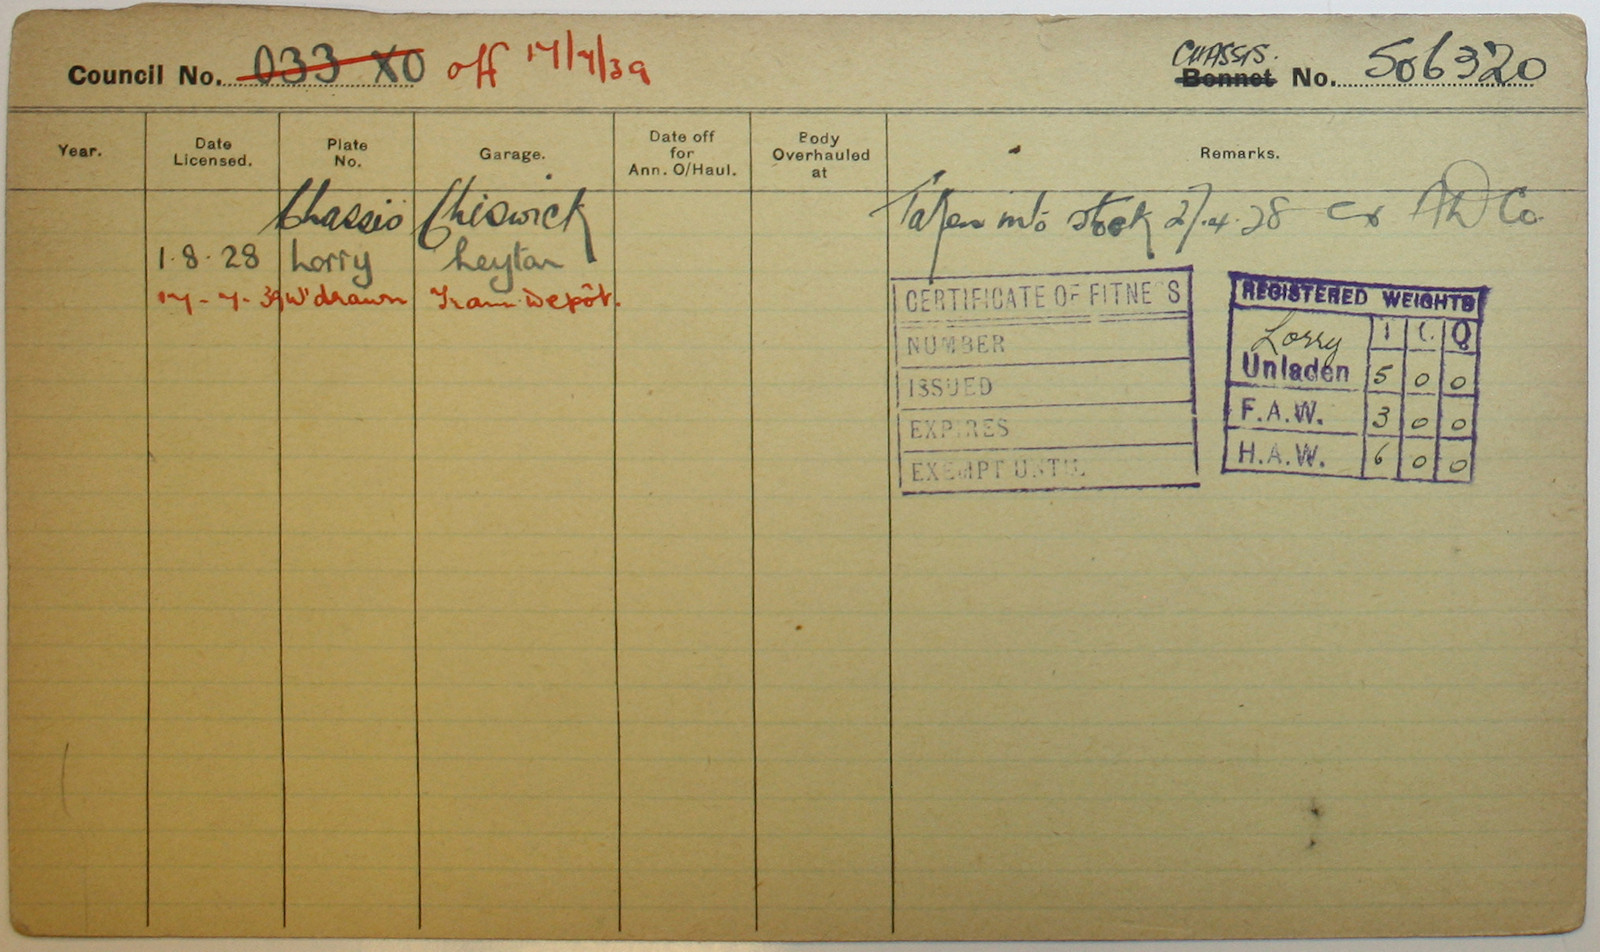 Council No. 033 XO off 17/7/39
CHASSIS.
Bonnet No. 506320
Year. Date Licensed. Plate No. Garage. Date off for Ann. O/Haul. Body Overhauled at Remarks.
Chassis Chiswick Taken into stock 27.4.28 ex AD Co.
1.8.28 Lorry Leyton
17-7-39 W'drawn Tram Depôt.
CERTIFICATE OF FITNESS
NUMBER
ISSUED
EXPIRES
EXEMPT UNTIL
REGISTERED WEIGHTS
Lorry T C Q
Unladen 5 0 0
F.A.W. 3 0 0
H.A.W. 6 0 0